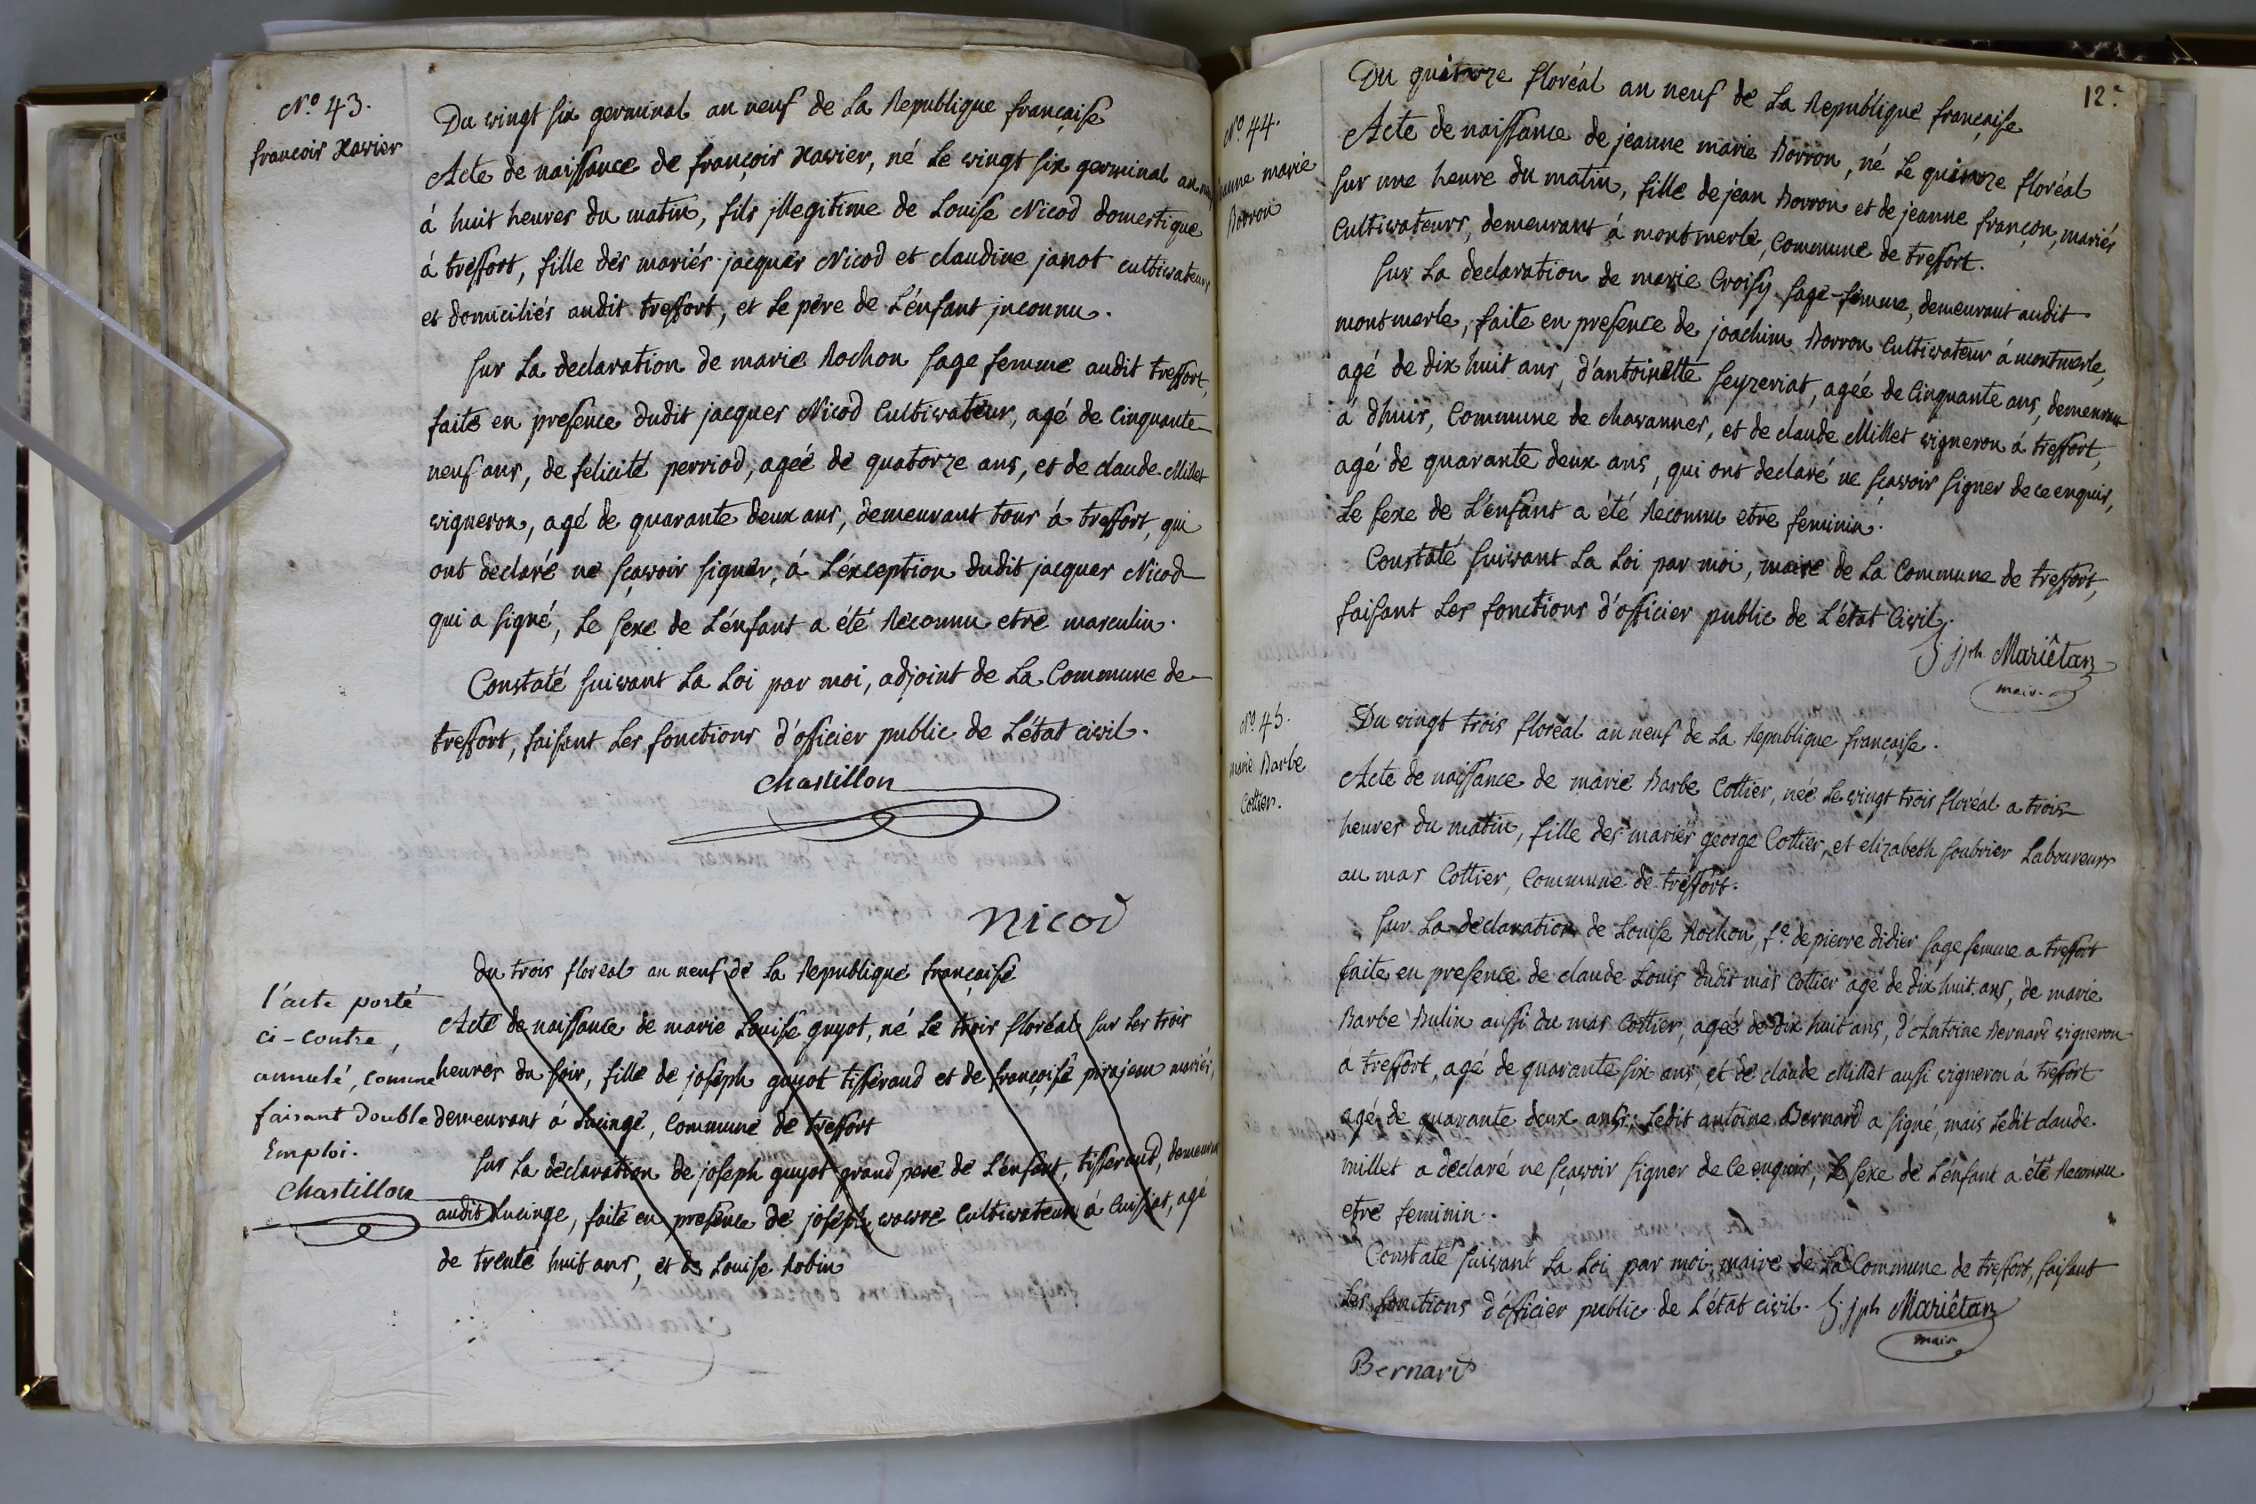 N.º 43.
francois Xavier
Du vingt six germinal an neuf de La Republique française
Acte de naissance de françois Xavier, né Le vingt six germinal an neuf
á huit heures du matin, fils jllegitime de Louise Nicod domestique
á treffort, fille des mariés jacques Nicod et claudine janot cultivateurs
et domiciliés audit treffort, et Le pére de L'énfant jnconnu.
sur La declaration de marie Rochon sage femme audit treffort,
faite en presence dudit jacques Nicod Cultivateur, agé de Cinquante
neuf ans, de felicité perriod, agéé de quatorze ans, et de claude Millet
vigneron, agé de quarante deux ans, demeurant tous á treffort, qui
ont declaré ne sçavoir signer, á L'éxception dudit jacques Nicod
qui a signé, Le sexe de L'énfant a été Reconnu etre masculin.
Constaté suivant La Loi par moi, adjoint de La Commune de
treffort, faisant Les fonctions d'officier public de L'état civil.
Chastillon
Nicod
l'acte porté
ci-contre,
annulé, comme
faisant double
Emploi.
Chastillon
du trois floréal an neuf de La Republique française
Acte de naissance de marie Louise guyot, né Le trois floréal sur Les trois
heures du soir, fille de joseph guyot tisserand et de françoise pirajean mariés,
demeurant á Lucinge, Commune de treffort
sur La declaration de joseph guyot grand pere de L'énfant, tisserand, demeurant
audit Lucinge, faite en presence de joseph vavre Cultivateur á Cuisiat, agé
de trente huit ans, et de Louise Robin
12.
N.º 44.
jeanne marie
Borron
Du quinze floréal an neuf de La Republique française
Acte de naissance de jeanne marie Borron, né Le quinze floréal
sur une heure du matin, fille de jean Borron et de jeanne françon, mariés
Cultivateurs, demeurant á montmerle, Commune de treffort.
sur La declaration de marie Croisy sage-femme, demeurant audit
montmerle, faite en presence de joachim Borron Cultivateur á montmerle,
agé de dix huit ans, d'antoinette seyzeriat, agéé de Cinquante ans, demeurant
á dhuis, Commune de chavannes, et de claude Millet vigneron á treffort,
agé de quarante deux ans, qui ont declaré ne sçavoir signer de ce enquis,
Le sexe de L'énfant a été Reconnu etre feminin.
Constaté suivant La Loi par moi, maire de La Commune de treffort,
faisant Les fonctions d'officier public de L'état Civil.
jph Mariêtan
maire
N.º 45.
marie Barbe
Cottier.
Du vingt trois floréal an neuf de La Republique française.
Acte de naissance de marie Barbe Cottier, néé Le vingt trois floréal a trois
heures du matin, fille des mariés george Cottier, et elizabeth soubrier Laboureurs
au mas Cottier, Commune de treffort.
sur La declaration de Louise Rochon, f.e de pierre didier sage femme a treffort
faite en presence de claude Louis dudit mas Cottier agé de dix huit ans, de marie
Barbe Bulin aussi du mas Cottier, agéé de dix huit ans, d'Antoine Bernard vigneron
á treffort, agé de quarante six ans, et de claude Millet aussi vigneron á treffort
agé de quarante deux ans; Ledit antoine Bernard a signé, mais Ledit claude
millet a declaré ne sçavoir signer de Ce enquis, Le sexe de L'énfant a été Reconnu
etre feminin.
Constaté suivant La Loi par moi, maire de La Commune de treffort, faisant
Les fonctions d'officier public de L'état civil. jph Mariêtan
maire
Bernard